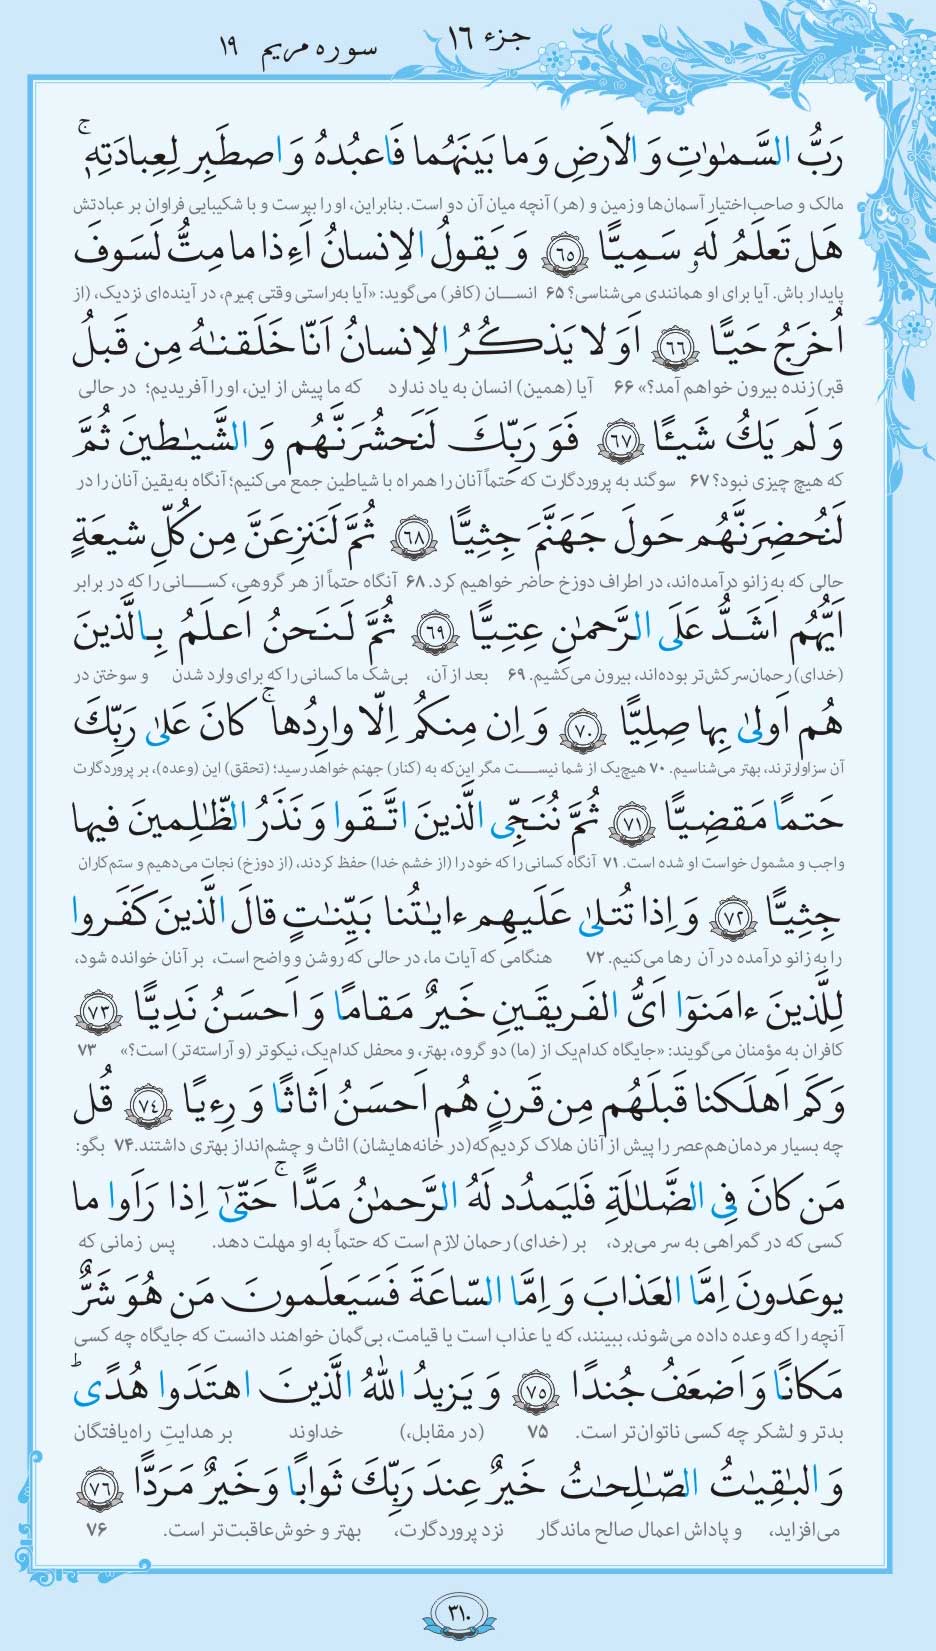 جزء ۱۶
سوره مریم ۱۹
رَبُّ السَّمٰوٰتِ وَ الاَرضِ وَ ما بَینَهُما فَاعبُدهُ وَ اصطَبِر لِعِبادَتِهٖ ۚ
مالک و صاحب‌اختیار آسمان‌ها و زمین و (هر) آنچه میان آن دو است. بنابراین، او را بپرست و با شکیبایی فراوان بر عبادتش
هَل تَعلَمُ لَهٗ سَمِیًّا ﴿۶۵﴾ وَ یَقولُ الاِنسانُ اَءِذا ما مِتُّ لَسَوفَ
پایدار باش. آیا برای او همانندی می‌شناسی؟ ۶۵ انسان (کافر) می‌گوید: «آیا به‌راستی وقتی بمیرم، در آینده‌ای نزدیک، (از
اُخرَجُ حَیًّا ﴿۶۶﴾ اَوَ لا یَذکُرُ الاِنسانُ اَنّا خَلَقنٰهُ مِن قَبلُ
قبر) زنده بیرون خواهم آمد؟» ۶۶ آیا (همین) انسان به یاد ندارد که ما پیش از این، او را آفریدیم؛ در حالی
وَ لَم یَکُ شَیـًٔا ﴿۶۷﴾ فَوَ رَبِّکَ لَنَحشُرَنَّهُم وَ الشَّیٰطینَ ثُمَّ
که هیچ چیزی نبود؟ ۶۷ سوگند به پروردگارت که حتماً آنان را همراه با شیاطین جمع می‌کنیم؛ آنگاه به‌یقین آنان را در
لَنُحضِرَنَّهُم حَولَ جَهَنَّمَ جِثِیًّا ﴿۶۸﴾ ثُمَّ لَنَنزِعَنَّ مِن کُلِّ شیعَةٍ
حالی که به زانو درآمده‌اند، در اطراف دوزخ حاضر خواهیم کرد. ۶۸ آنگاه حتماً از هر گروهی، کسانی را که در برابر
اَیُّهُم اَشَدُّ عَلَی الرَّحمٰنِ عِتِیًّا ﴿۶۹﴾ ثُمَّ لَنَحنُ اَعلَمُ بِالَّذینَ
(خدای) رحمان سرکش‌تر بوده‌اند، بیرون می‌کشیم. ۶۹ بعد از آن، بی‌شک ما کسانی را که برای وارد شدن و سوختن در
هُم اَولیٰ بِها صِلِیًّا ﴿۷۰﴾ وَ اِن مِنکُم اِلّا وارِدُها ۚ کانَ عَلیٰ رَبِّکَ
آن سزاوارترند، بهتر می‌شناسیم. ۷۰ هیچ‌یک از شما نیست مگر این‌که به (کنار) جهنم خواهد رسید؛ (تحقق) این (وعده)، بر پروردگارت
حَتمًا مَقضِیًّا ﴿۷۱﴾ ثُمَّ نُنَجِّی الَّذینَ اتَّقَوا وَ نَذَرُ الظّٰلِمینَ فیها
واجب و مشمول خواست او شده است. ۷۱ آنگاه کسانی را که خود را (از خشم خدا) حفظ کردند، (از دوزخ) نجات می‌دهیم و ستم‌کاران
جِثِیًّا ﴿۷۲﴾ وَ اِذا تُتلیٰ عَلَیهِم ءایٰتُنا بَیِّنٰتٍ قالَ الَّذینَ کَفَروا
را به زانو درآمده در آن رها می‌کنیم. ۷۲ هنگامی که آیات ما، در حالی که روشن و واضح است، بر آنان خوانده شود،
لِلَّذینَ ءامَنوٓا اَیُّ الفَریقَینِ خَیرٌ مَقامًا وَ اَحسَنُ نَدِیًّا ﴿۷۳﴾
کافران به مؤمنان می‌گویند: «جایگاه کدام‌یک از (ما) دو گروه، بهتر، و محفل کدام‌یک، نیکوتر (و آراسته‌تر) است؟» ۷۳
وَ کَم اَهلَکنا قَبلَهُم مِن قَرنٍ هُم اَحسَنُ اَثاثًا وَ رِءیًا ﴿۷۴﴾ قُل
چه بسیار مردمان هم‌عصر را پیش از آنان هلاک کردیم که (در خانه‌هایشان) اثاث و چشم‌انداز بهتری داشتند. ۷۴ بگو:
مَن کانَ فِی الضَّلٰلَةِ فَلیَمدُد لَهُ الرَّحمٰنُ مَدًّا ۚ حَتّیٰٓ اِذا رَاَوا ما
کسی که در گمراهی به سر می‌برد، بر (خدای) رحمان لازم است که حتماً به او مهلت دهد. پس زمانی که
یوعَدونَ اِمَّا العَذابَ وَ اِمَّا السّاعَةَ فَسَیَعلَمونَ مَن هُوَ شَرٌّ
آنچه را که وعده داده می‌شوند، ببینند، که یا عذاب است یا قیامت، بی‌گمان خواهند دانست که جایگاه چه کسی
مَکانًا وَ اَضعَفُ جُندًا ﴿۷۵﴾ وَ یَزیدُ اللّٰهُ الَّذینَ اهتَدَوا هُدًی ۗ
بدتر و لشکر چه کسی ناتوان‌تر است. ۷۵ (در مقابل،) خداوند بر هدایتِ راه‌یافتگان
وَ البٰقِیٰتُ الصّٰلِحٰتُ خَیرٌ عِندَ رَبِّکَ ثَوابًا وَ خَیرٌ مَرَدًّا ﴿۷۶﴾
می‌افزاید، و پاداش اعمال صالح ماندگار نزد پروردگارت، بهتر و خوش‌عاقبت‌تر است. ۷۶
۳۱۰